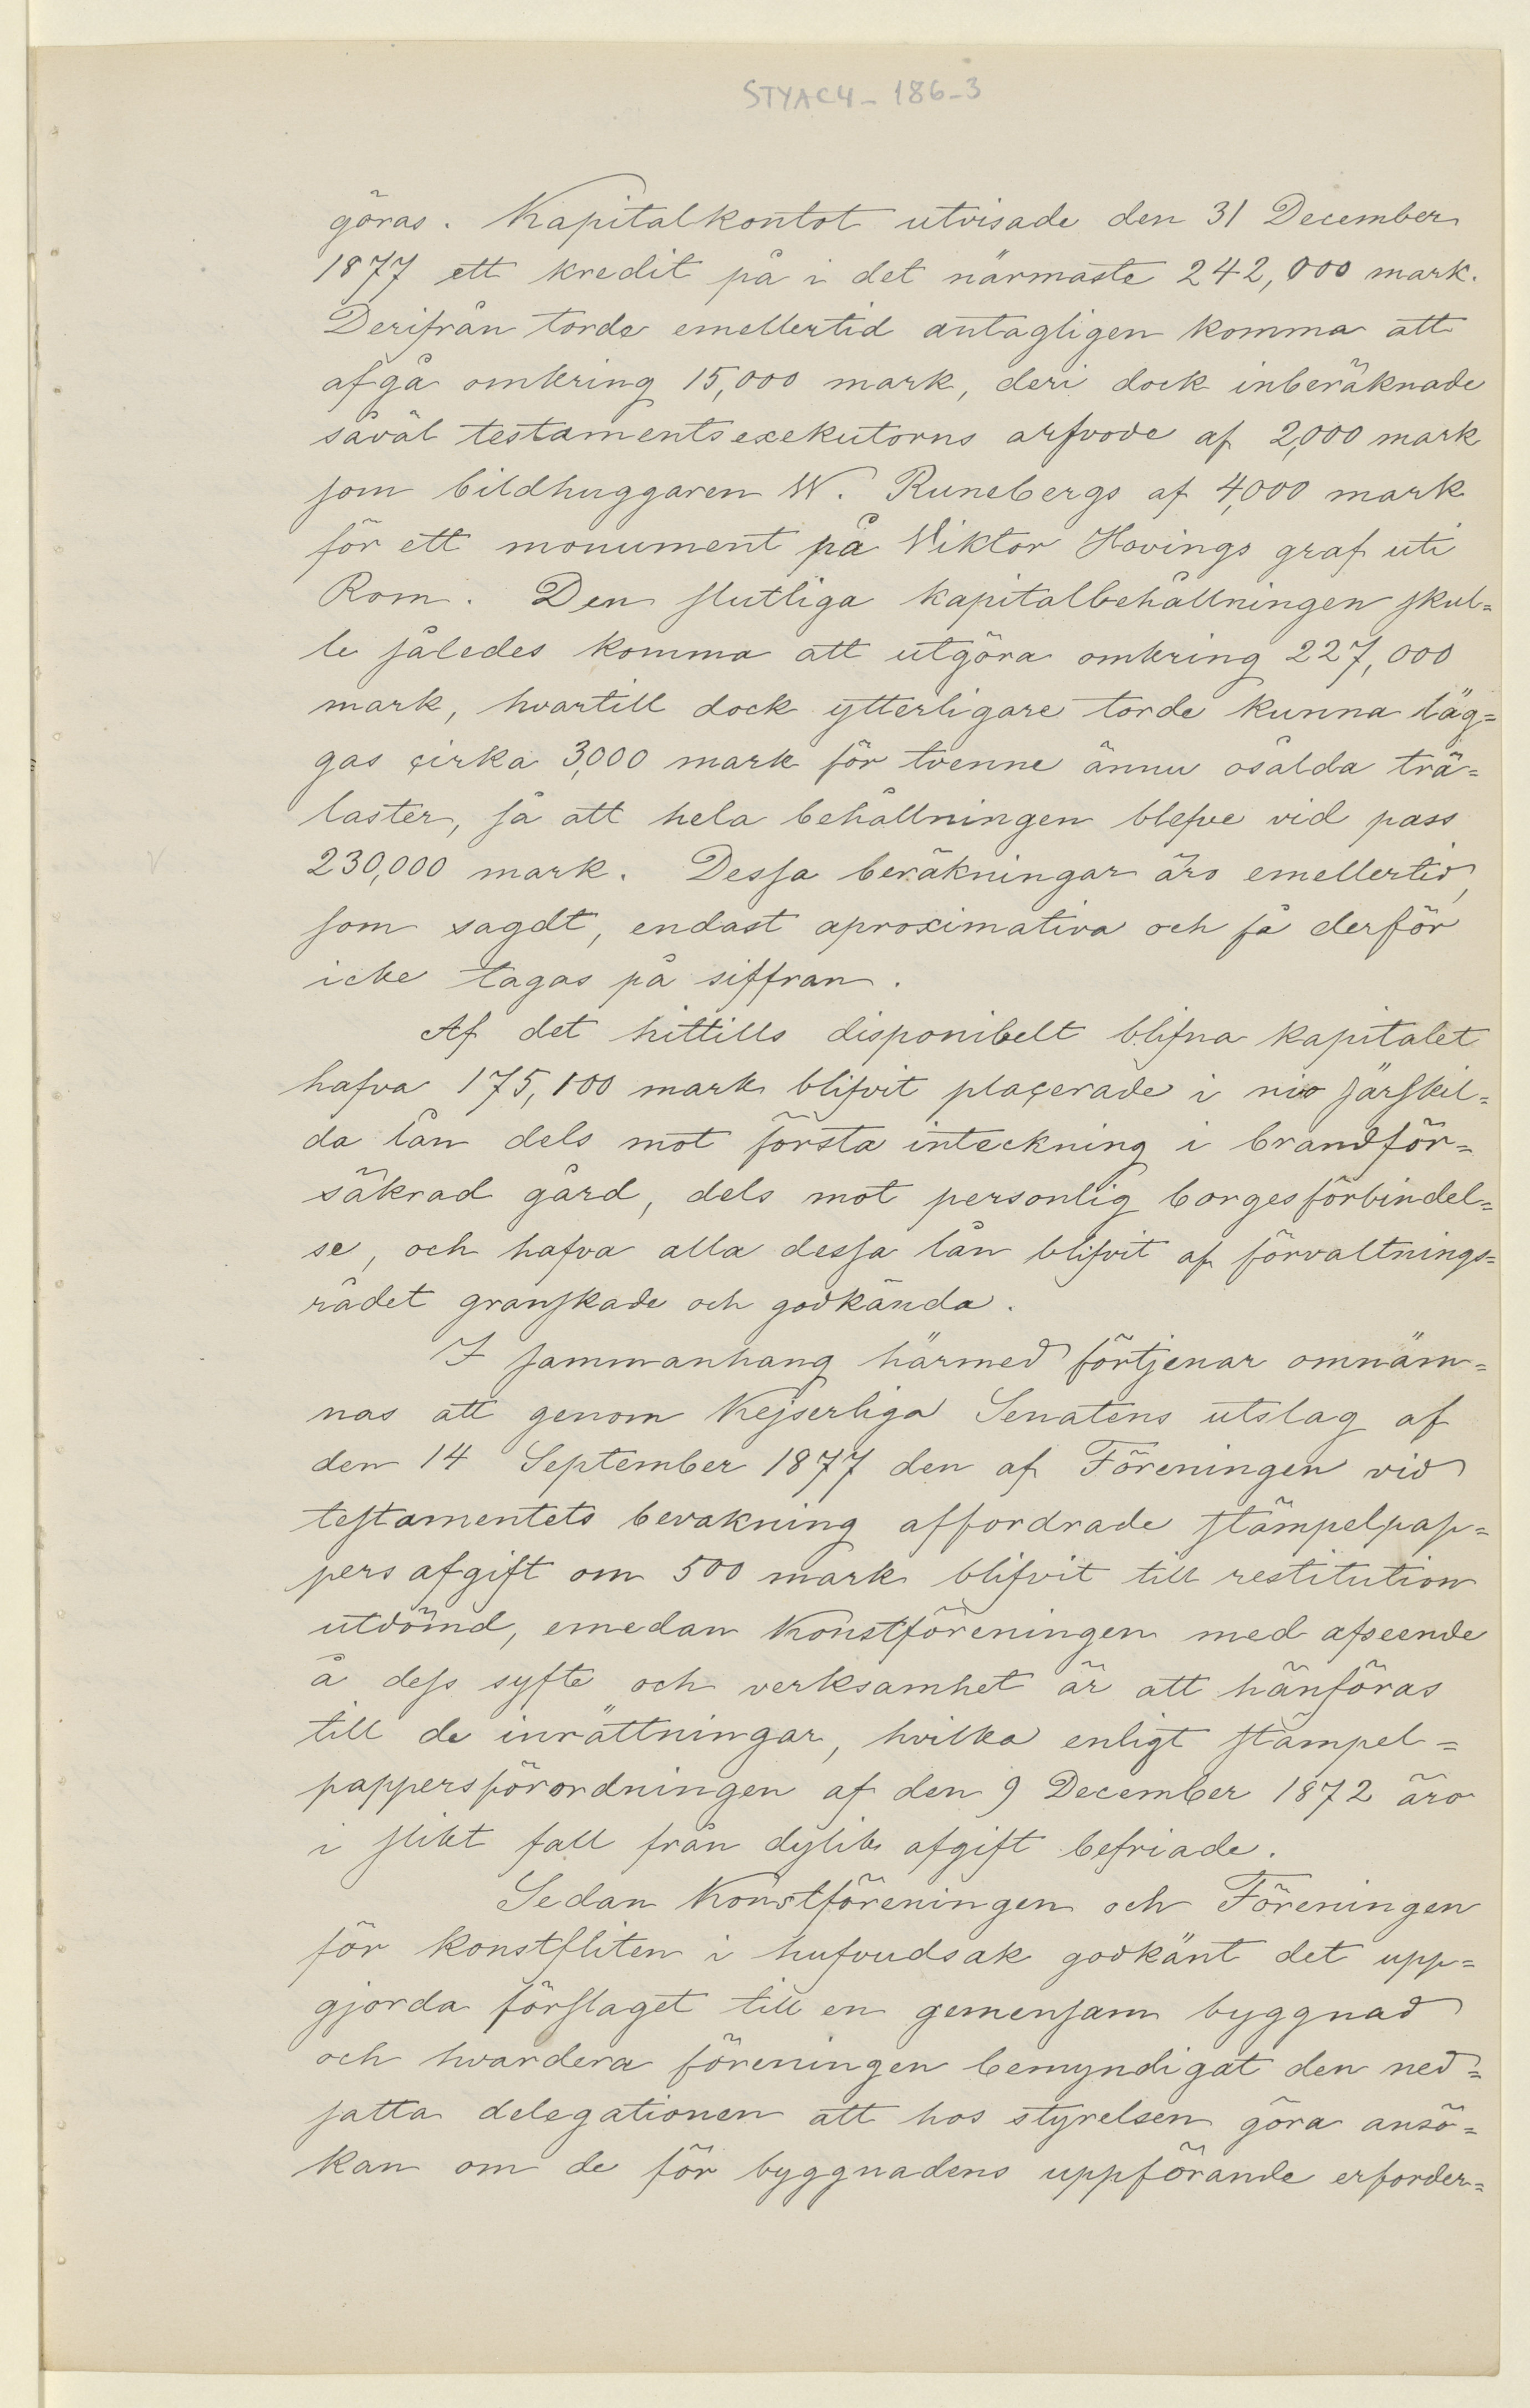 STYAC4-186-3
göras. Kapitalkontot utvisade den 31 December
1877 ett kredit på i det närmaste 242,000 mark.
Derifrån torde emellertid antagligen komma att
afgå omkring 15,000 mark, deri dock inberäknade
såväl testamentsexekutorns arfvode af 2,000 mark
som bildhuggaren W. Runebergs af 4,000 mark
för ett monument på Viktor Hovings graf uti
Rom. Den slutliga kapitalbehållningen skul=
le således komma att utgöra omkring 227,000
mark, hvartill dock ytterligare torde kunna läg=
gas çirka 3,000 mark för tvenne ännu osålda trä=
laster, så att hela behållningen blefve vid pass
230,000 mark. Dessa beräkningar äro emellertid,
som sagdt, endast aproximativa och få derför
icke tagas på siffran.
Af det hittills disponibelt blifna kapitalet
hafva 175,100 mark blifvit plaçerade i nio särskil=
da lån dels mot första inteckning i brandför=
säkrad gård, dels mot personlig borgesförbindel=
se, och hafva alla dessa lån blifvit af förvaltnings=
rådet granskade och godkända.
I sammanhang härmed förtjenar omnäm=
nas att genom Kejserliga Senatens utslag af
den 14 September 1877 den af Föreningen vid
testamentets bevakning affordrade stämpelpap=
pers afgift om 500 mark blifvit till restitution
utdömd, emedan Konstföreningen med afseende
å dess syfte och verksamhet är att hänföras
till de inrättningar, hvilka enligt stämpel=
pappersförordningen af den 9 December 1872 äro
i slikt fall från dylik afgift befriade.
Sedan Konstföreningen och Föreningen
för konstfliten i hufvudsak godkänt det upp=
gjorda förslaget till en gemensam byggnad
och hvardera föreningen bemyndigat den ned=
satta delegationen att hos styrelsen göra ansö=
kan om de för byggnadens uppförande erforder=